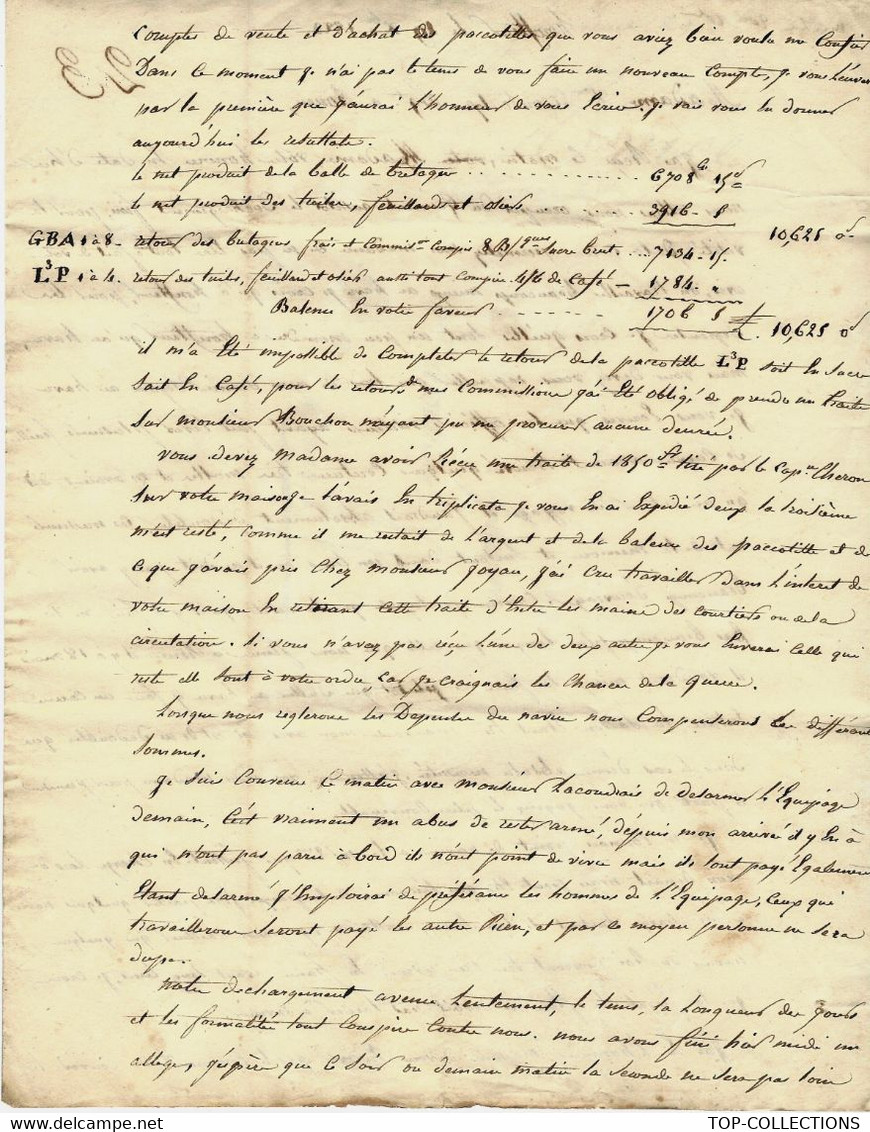 Comptes de vente et d'achat des paccotilles que vous aviez bien voulu me Confier
Dans ce moment je n'ai pas le tems de vous faire un nouveau Compte, je vous l'enverai
par la première que j'aurai l'honneur de vous Ecrire. je vais vous en donner
aujourd'hui les resultats.
le net produit de la balle de bretagne .............. 6708 15
le net produit des toiles, feuillards et osiers ........ 3916 - 5
10,625 0
GBA 1 à 8 - retour des bretagnes frais et Commiss.on Compris 8 B/ques Sucre brut. ... 7134 - 15.
L3P 1 à 4. retour des toiles, feuillard et osiers aussi tout Compris 4/6 de Café - 1784. "
Balence En votre faveur ........ 1706 5
£. 10,625 0
il m'a Eté impossible de Completer le retour de la paccotille L3P soit En Sucre
Soit En Café, pour les retours de mes Commissions j'ai Eté obligé de prendre un traite
Sur monsieur Bouchon n'ayant pu me procurer aucune denrée.
vous devez madame avoir Réçue une traite de 1850 tiré par le Cap.ne Cheron
Sur votre maison je l'avais En triplicata je vous En ai Expedié deux la troisième
m'est resté, Comme il me restait de l'argent et de la balence des paccotille et de
Ce que j'avais pris Chez monsieur Joyau, j'ai Cru travailler Dans l'interet de
votre maison En retirant cette traite d'Entre les mains des courtiers ou de la
circulation. Si vous n'avez pas réçu l'une des deux autre je vous Enverai Celle qui
reste elle sont à votre ordre, Car je Craignais les Chances de la guerre.
Lorsque nous reglerons les Depenses du navire nous Compenserons les différente
Sommes.
Je Suis Convenu ce matin avec monsieur Lacoudrais de desarmer l'Equipage
demain, C'est vraiment un abus de rester armé, dépuis mon arrivée il y En à
qui n'ont pas paru à bord ils n'ont point de vivre mais ils sont payé Egalement
Etant desarmé j'Emploirai de préférance les hommes de l'Equipage, Ceux qui
travaillerons Seront payé les autre Rien, et par ce moyen personne ne Sera
dupe.
notre dechargement avence Lentement, le tems, la Longueur des jours
et les formalités tout Conspire Contre nous. nous avons fini hier midi un
allege, j'éspère que Ce Soir ou demain matin la Seconde ne Sera pas loin
TOP-COLLECTIONS